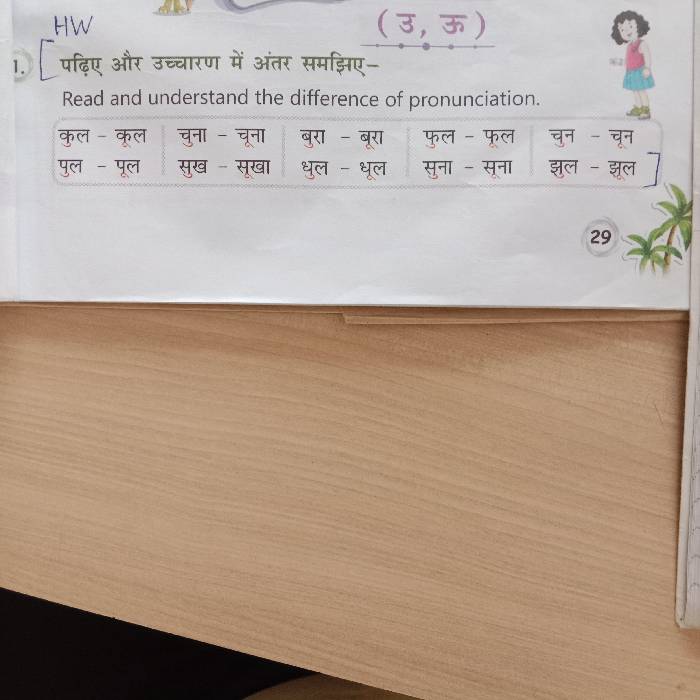 HW
(उ, ऊ)
1. पढ़िए और उच्चारण में अंतर समझिए–
Read and understand the difference of pronunciation.
कुल – कूल चुना – चूना बुरा – बूरा फुल – फूल चुन – चून
पुल – पूल सुख – सूखा धुल – धूल सुना – सूना झुल – झूल
29